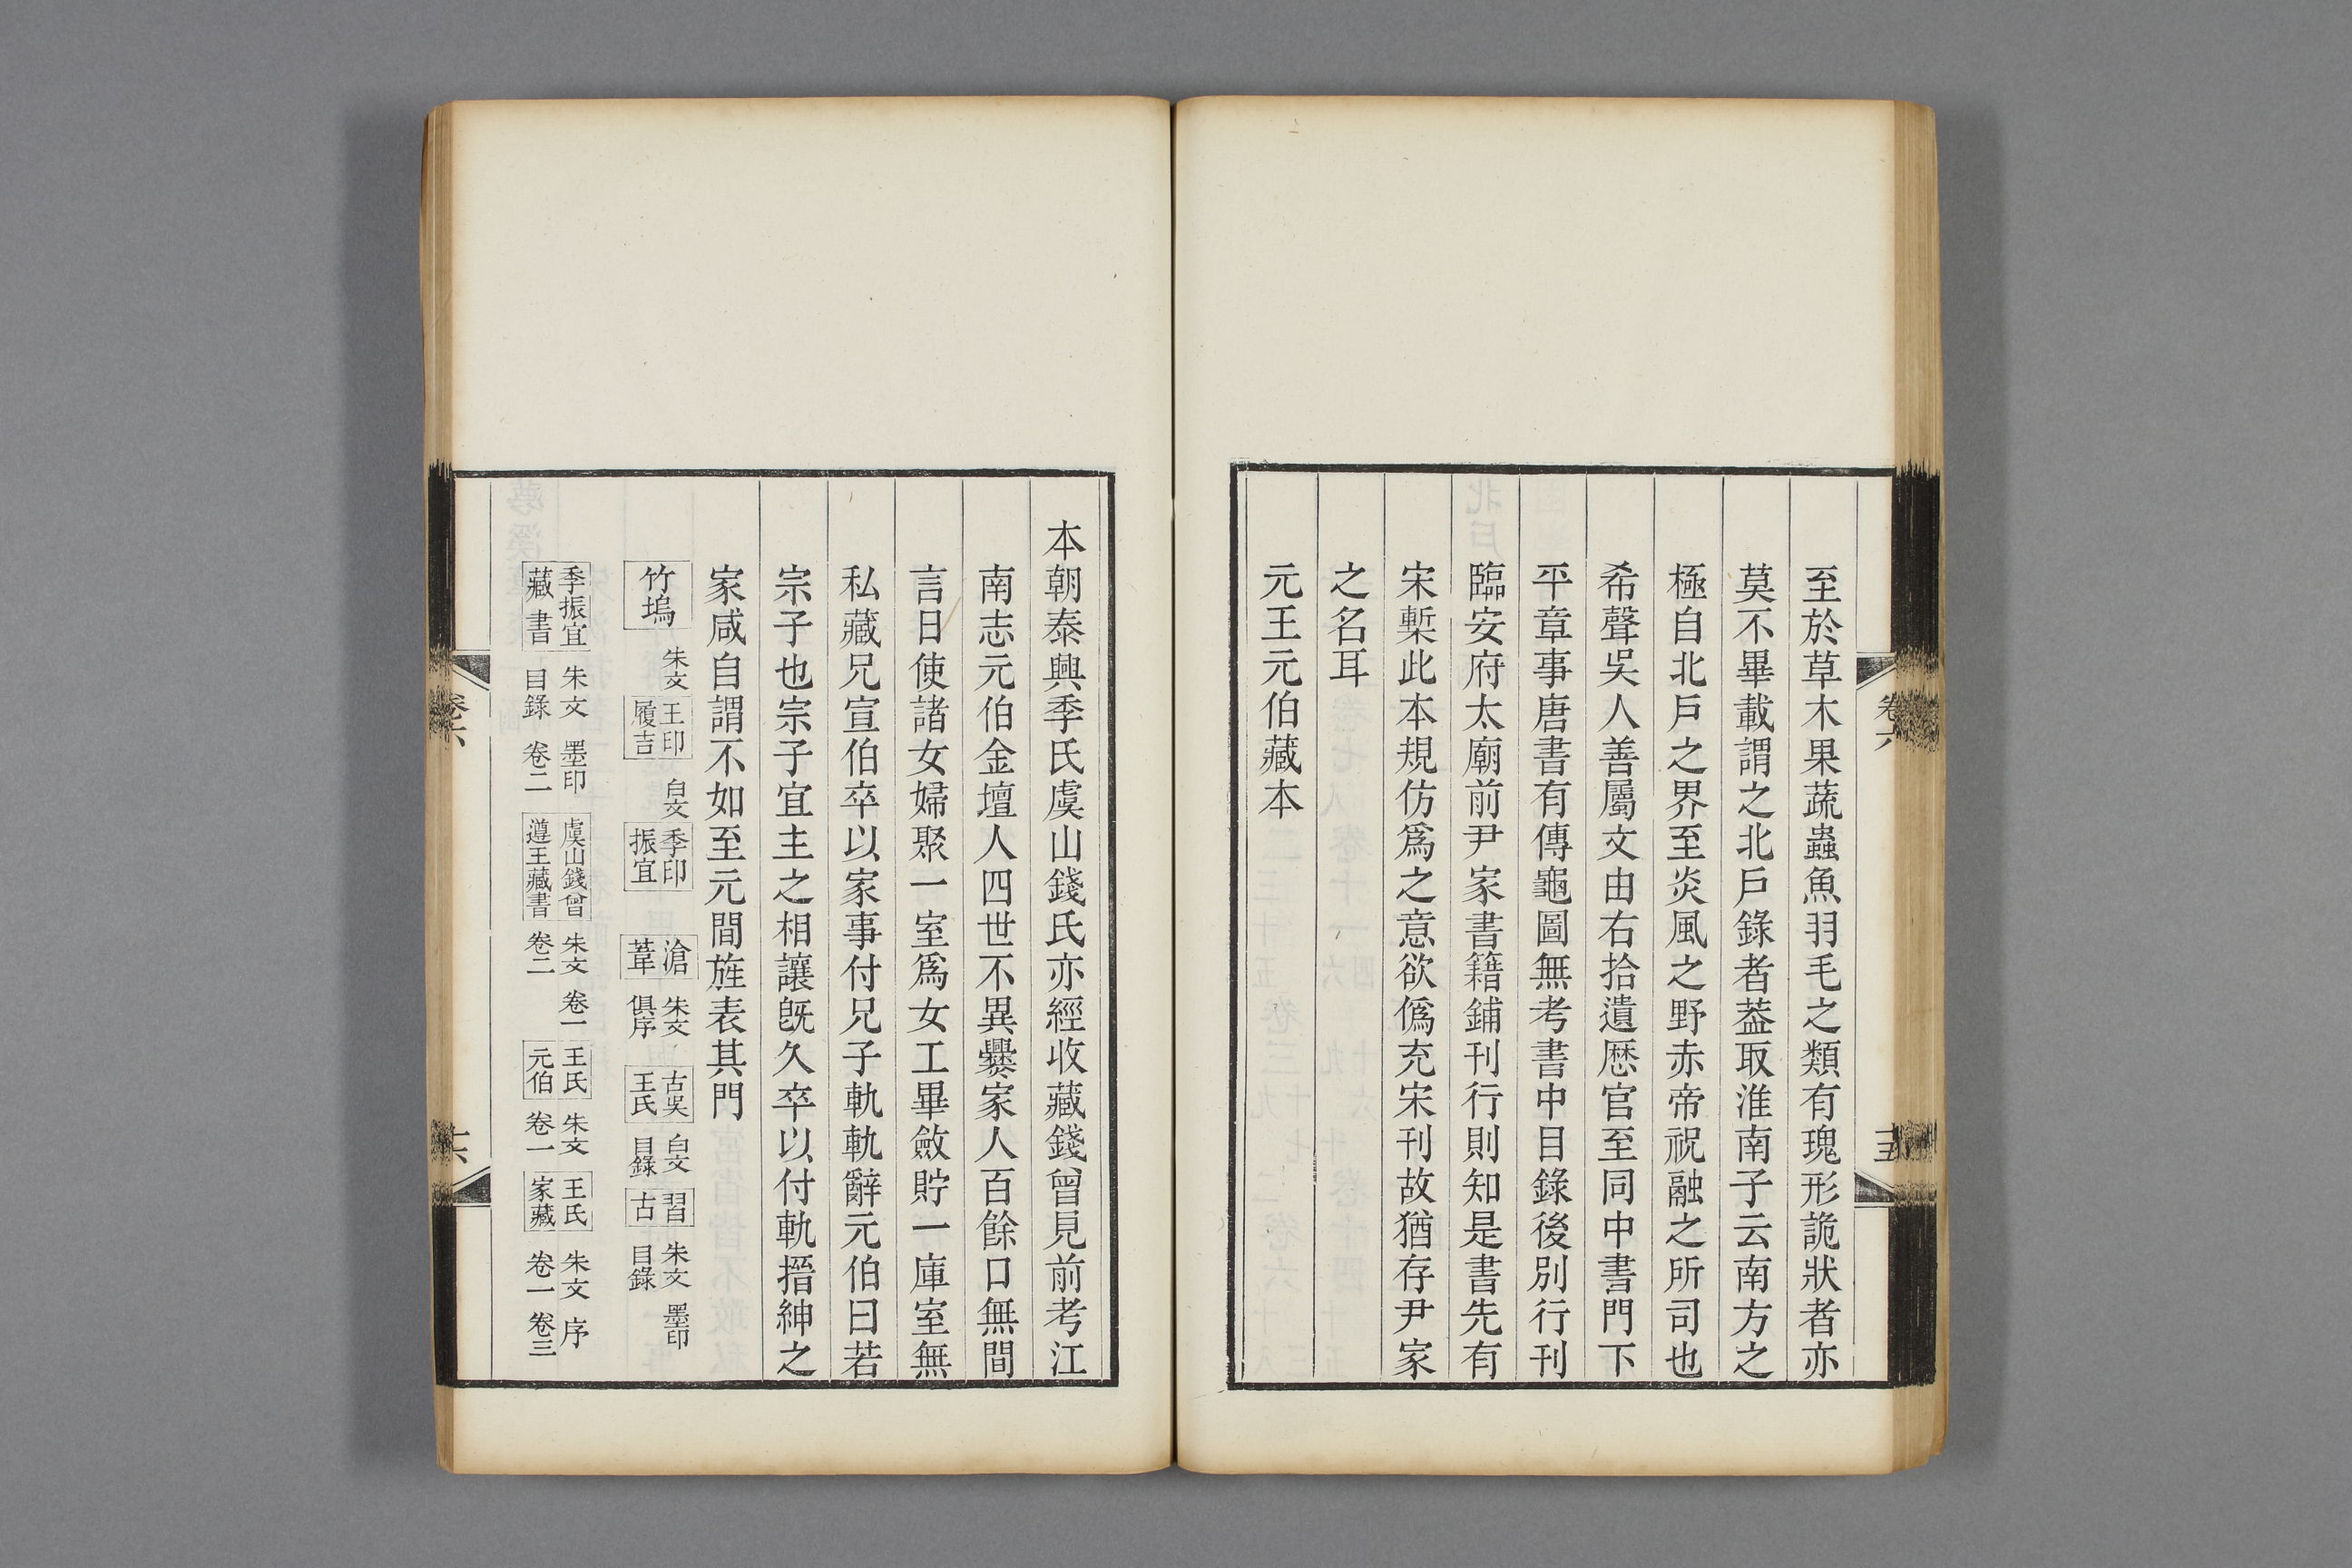 至於草木果蔬蟲魚羽毛之類有瑰形詭狀者亦
莫不畢載謂之北戶錄者葢取淮南子云南方之
極自北戶之界至炎風之野赤帝祝融之所司也
希聲吳人善屬文由右拾遺歷官至同中書門下
平章事唐書有傳龜圖無考書中目錄後別行刊
臨安府太廟前尹家書籍鋪刊行則知是書先有
宋槧此本規仿爲之意欲僞充宋刊故猶存尹家
之名耳
元王元伯藏本
卷六
十五
本朝泰興季氏虞山錢氏亦經收藏錢曾見前考江
南志元伯金壇人四世不異爨家人百餘口無間
言日使諸女婦聚一室爲女工畢斂貯一庫室無
私藏兄宣伯卒以家事付兄子軌軌辭元伯曰若
宗子也宗子宜主之相讓旣久卒以付軌搢紳之
家咸自謂不如至元間旌表其門
竹塢
朱文
王印
履吉
白文
季印
振宜
滄
葦
朱文
俱序
古吳
王氏
白文
目錄
習
古
朱文
目錄
墨印
季振宜
藏書
朱文
目錄
墨印
卷二
虞山錢曾
遵王藏書
朱文
卷二
卷一
王氏
元伯
朱文
卷一
王氏
家藏
朱文
卷一
序
卷三
卷六
十六